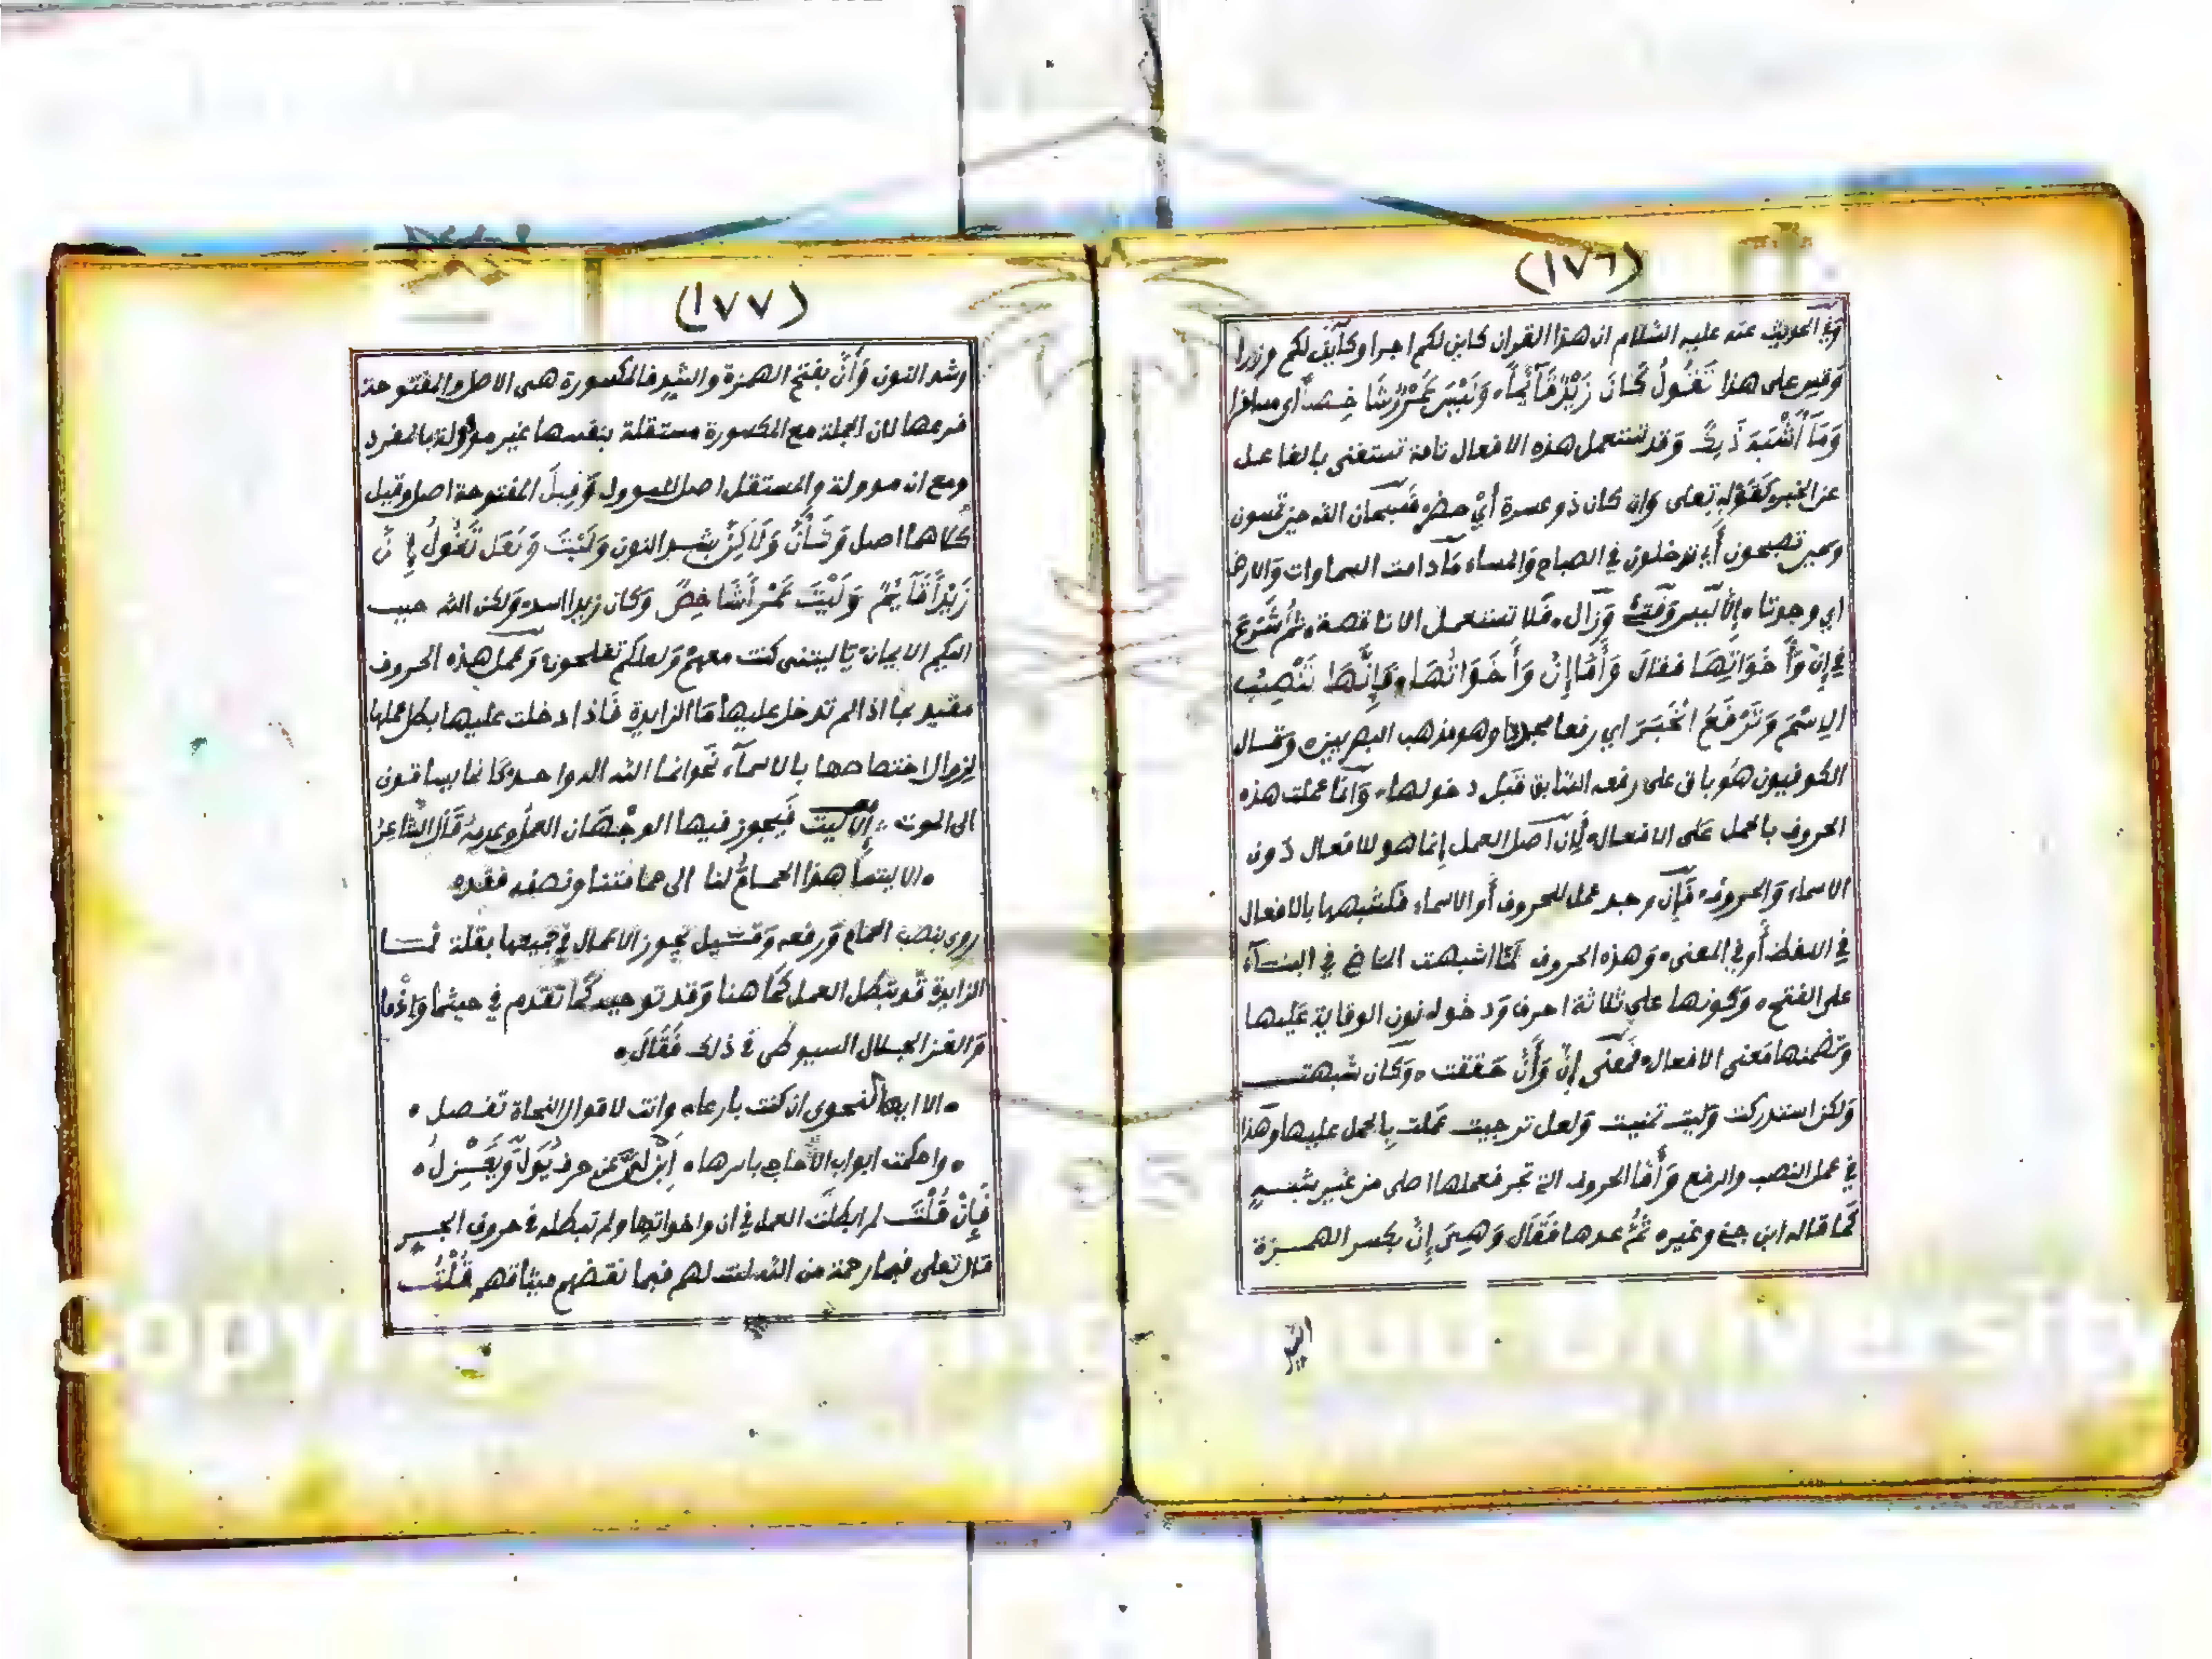 (١٧٦)
وفي الحديث عنه عليه السلام ان هذا القران كاين لكم اجرا وكاين لكم وزرا
وقس على هذا تَقُولُ كَانَ زَيْدٌ قَآئِماً، وَلَيْسَ عَمْرٌو شَاخِصاً اي مسافرا
وَمَا أَشْبَهَ ذَلِكَ وقد تستعمل هذه الافعال تامة تستغنى بالفاعل
عن الخبر كقوله تعلى وان كان ذو عسرة أي حضر فسبحان الله حين تمسون
وحين تصبحون أي تدخلون في الصباح والمساء مادامت السماوات والارض
اي وجودتا، إلا ليس وفتئ وزال، فلا تستعمل الا ناقصة، ثم شرع
في إن وأخواتها فقال وَأَمَّا إِنَّ وَأَخَوَاتُهَا، فَإِنَّهَا تَنْصِبُ
الاِسْمَ وَتَرْفَعُ الخَبَرَ اي رفعا مجددا وهو مذهب البصريين، وقال
الكوفيون هو باق على رفعه السابق قبل دخولها، وانما عملت هذه
الحروف بالحمل على الافعال، لأن اصل العمل إنما هو للافعال دون
الاسماء والحروف، فإن وجد عمل للحروف أو الاسماء فلشبهها بالافعال
في اللفظ أو في المعنى، وهذه الحروف لما اشبهت الماضي في البنآء
على الفتح، وكونها على ثلاثة احرف ودخول نون الوقاية عليها
وتضمنها معنى الافعال، فمعنى إنّ وأنّ حققت، وكأن شبهت
ولكن استدركت وليت تمنيت ولعل ترجيت عملت بالحمل عليها وهذا
في عمل النصب والرفع وأما الحروف التي تجر فعملها اصلى من غير شبه
كما قاله ابن جني وغيره ثم عدها فقال وَهِيَ إِنَّ بكسر الهمزة
(١٧٧)
وشد النون وَأَنَّ بفتح الهمزة والشد فالمكسورة هى الاصل والمفتوحة
فرعها لان الجملة مع المكسورة مستقلة بنفسها غير مؤولة بالمفرد
ومع ان موولة والمستقل اصل للموول وقيل المفتوحة اصل وقيل
كلاهما اصل وَكَأَنَّ وَلَاكِنَّ بشد النون وَلَيْتَ وَلَعَلَّ تَقُولُ إِنَّ
زَيْداً قَآئِمٌ وَلَيْتَ عَمْراً شَاخِصٌ وكان زيدا اسد، ولكن الله حبب
اليكم الايمان، يا ليتنى كنت معهم ولعلكم تفلحون، وعمل هذه الحروف
مقيد بما اذا لم تدخل عليها ما الزايدة فاذا دخلت عليها بطل عملها
لزوال اختصاصها بالاسمآء نحو انما الله اله واحد كانما يساقون
الى الموت، إلا ليت فيجوز فيها الوجهان العمل وعدمه قال الشاعر
، الا ليتما هذا الحمام لنا الى حمامتنا ونصفه فقد،
روى بنصب الحمام ورفعه وقيل يجوز الاعمال في جميعها بقلة فما
الزايدة قد تبطل العمل كما هنا وقد توجبه كما تقدم في حيثما وإذما
والغز الجلال السيوطي في ذلك فقال،
، الا ايها النحوى ان كنت بارعا، وانت لاقوال النحاة تفصل،
، واحكمت ابواب الأحاجى باسرها، أبن لي عن حرف يولّ ويعزل،
فَإِنْ قُلْتَ لم ابطلت العمل في ان واخواتها ولم تبطله في حروف الجر
قال تعلى فبما رحمة من الله لنت لهم فبما نقضهم ميثاقهم قُلْتُ